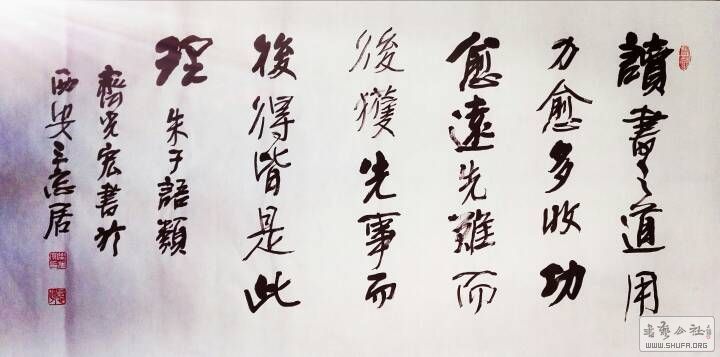 讀書之道用
力愈多收功
愈遠先難而
後獲先事而
後得皆是此
理 朱子語類
齊光宏書於
西安三忘居
书艺公社
WWW.SHUFA.ORG